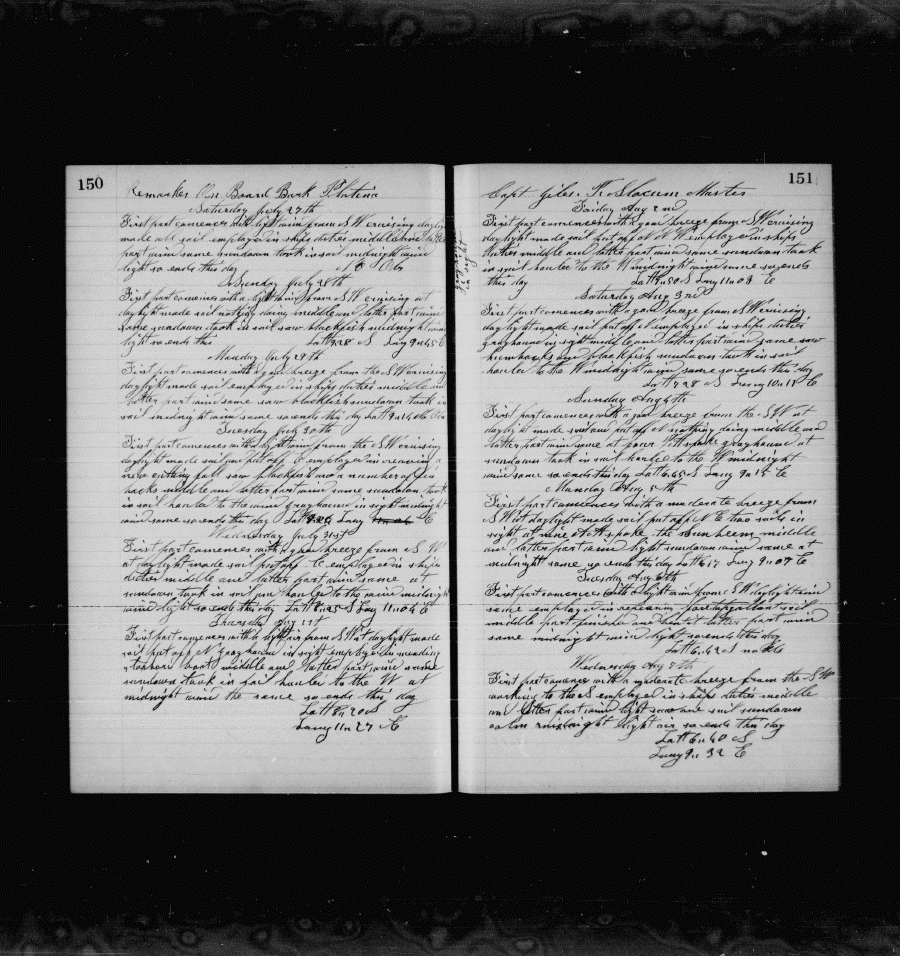 150
Remarkes On Board Bark Platina
Saturday July 27th
First part comences with light wind from SW cruising daylight
made all sail employed in ships duties middle and latter
part wind same sundown took in sail midnight wind
light so ends this day No Obs
Sunday July 28th
First part comences with a light wind from SW cruising at
daylight made sail nothing doing middle and latter part wind
same sundown took in sail saw blackfish midnight wind
light so ends this Latt 7.28 S Long 9.45 E
Monday July 29th
First part comences with a good breeze from the SW cruising
daylight made sail employed in ships duties middle and
latter part wind same saw blackfish sundown took in
sail midnight wind same so ends this day Latt
Tuesday July 30th
First part comences with light wind from the SW cruising
daylight made sail and put off E employed in
new cutting fall saw blackfish and a number of fin
backs middle and latter part wind same sundown took
in sail hauled to the wind grayhound in sight midnight
wind same so ends this day Latt Long E
Wednesday July 31st
First part comences with a good breeze from S W
at daylight made sail put off E employed in ships
duties middle and latter part wind same at
sundown took in sail and hauled to the wind midnight
wind light so ends this day Latt 8.25 S Long 11.04 E
Thursday Aug 1st
First part comences with a light air from SW at daylight made
sail put off N grayhound in sight employed in mending
boat middle and latter part wind same
sundown took in sail hauled to the W at
midnight wind the same so ends this day
Latt 8.20 S
Long 11.27 E
in sight
151
Capt Giles. P. Slocum Master
Friday Aug 2nd
First part comences with a good breeze from SW cruising
daylight made sail put off N W employed in ships
duties middle and latter part wind same sundown took
in sail hauled to the W midnight wind same so ends
this day Latt 7.50 S Long 11.03 E
Saturday Aug 3rd
First part comences with a good breeze from SW cruising
daylight made sail put off N employed in ships duties
grayhound in sight middle and latter part wind same saw
humbacks and blackfish sundown took in sail
hauled to the W midnight wind same so ends this day
Latt 7.28 S Long 10.18 E
Sunday Aug 4th
First part comences with a good breeze from the SW at
daylight made sail and put off N nothing doing middle and
latter part wind same at four PM spoke grayhound at
sundown took in sail hauled to the W midnight
wind same so ends this day Latt 6.45 S Long 9.19 E
Monday Aug 5th
First part comences with a moderate breeze from
SW at daylight made sail put off N E two sails in
sight at nine AM spoke the Sunbeam middle
and latter part wind light sundown wind same at
midnight same so ends this day Latt 6.17 Long 9.09 E
Tuesday Aug 6th
First part comences with a light wind from SW daylight wind
same employed in repairing foretopgallant sail
middle part finished and bent it latter part wind
same midnight wind light so ends this day
Latt 6.42 S no Obs
Wednesday Aug 7th
First part comences with a moderate breeze from the S W
working to the S employed in ships duties middle
and latter part wind light saw one sail sundown
calm midnight light air so ends this day
Latt 6.40 S
Long 9.32 E